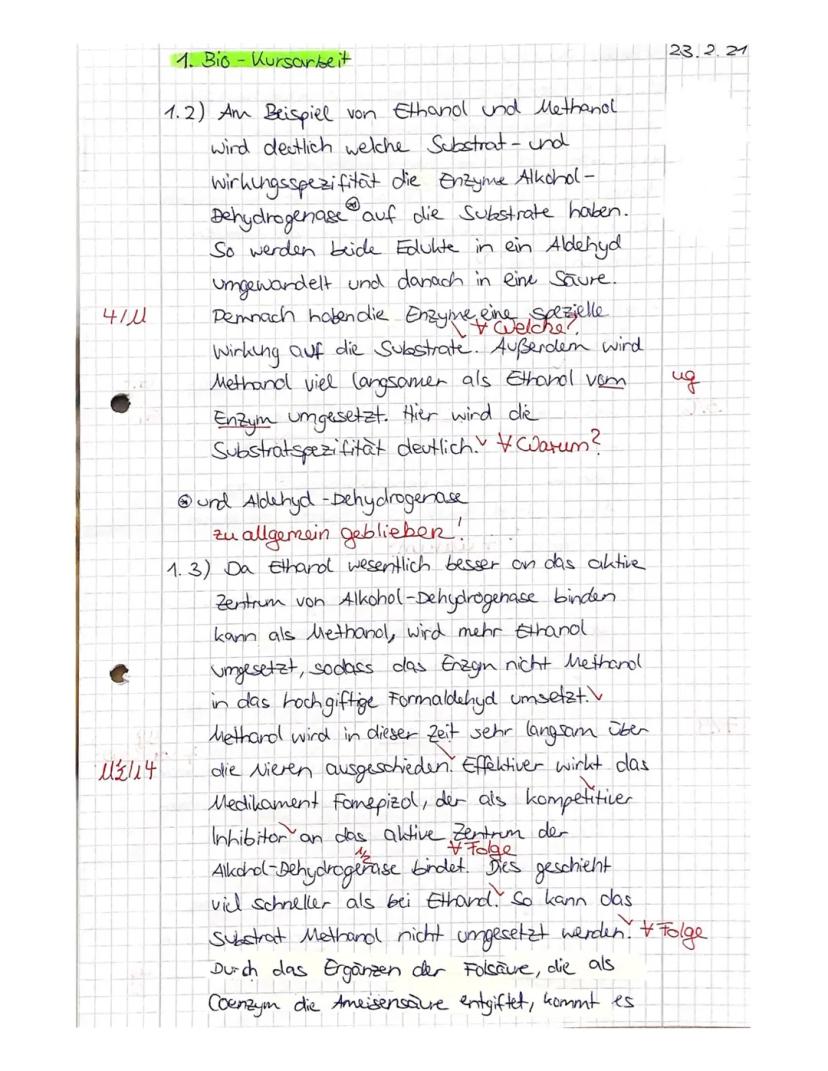 1. Bio - Kursarbeit
23.2.21
1.2) Am Beispiel von Ethanol und Methanol
wird deutlich welche Substrat- und
Wirkungsspezifität die Enzyme Alkohol-
Dehydrogenase⊛ auf die Substrate haben.
So werden beide Edukte in ein Aldehyd
umgewandelt und danach in eine Säure.
4/11
Demnach haben die Enzyme eine spezielle
Welche?
Wirkung auf die Substrate. Außerdem wird
Methanol viel langsamer als Ethanol vom
ug
Enzym umgesetzt. Hier wird die
Substratspezifität deutlich. Warum?
⊛ und Aldehyd-Dehydrogenase
zu allgemein geblieben!
1.3) Da Ethanol wesentlich besser an das aktive
Zentrum von Alkohol-Dehydrogenase binden
kann als Methanol, wird mehr Ethanol
umgesetzt, sodass das Enzym nicht Methanol
in das hochgiftige Formaldehyd umsetzt.
Methanol wird in dieser Zeit sehr langsam über
11½/14
die Nieren ausgeschieden. Effektiver wirkt das
Medikament Fomepizol, der als kompetitiver
Inhibitor an das aktive Zentrum der
½ Folge
Alkohol-Dehydrogenase bindet. Dies geschieht
viel schneller als bei Ethanol. So kann das
Substrat Methanol nicht umgesetzt werden. Folge
Durch das Ergänzen der Folsäure, die als
Coenzym die Ameisensäure entgiftet, kommt es